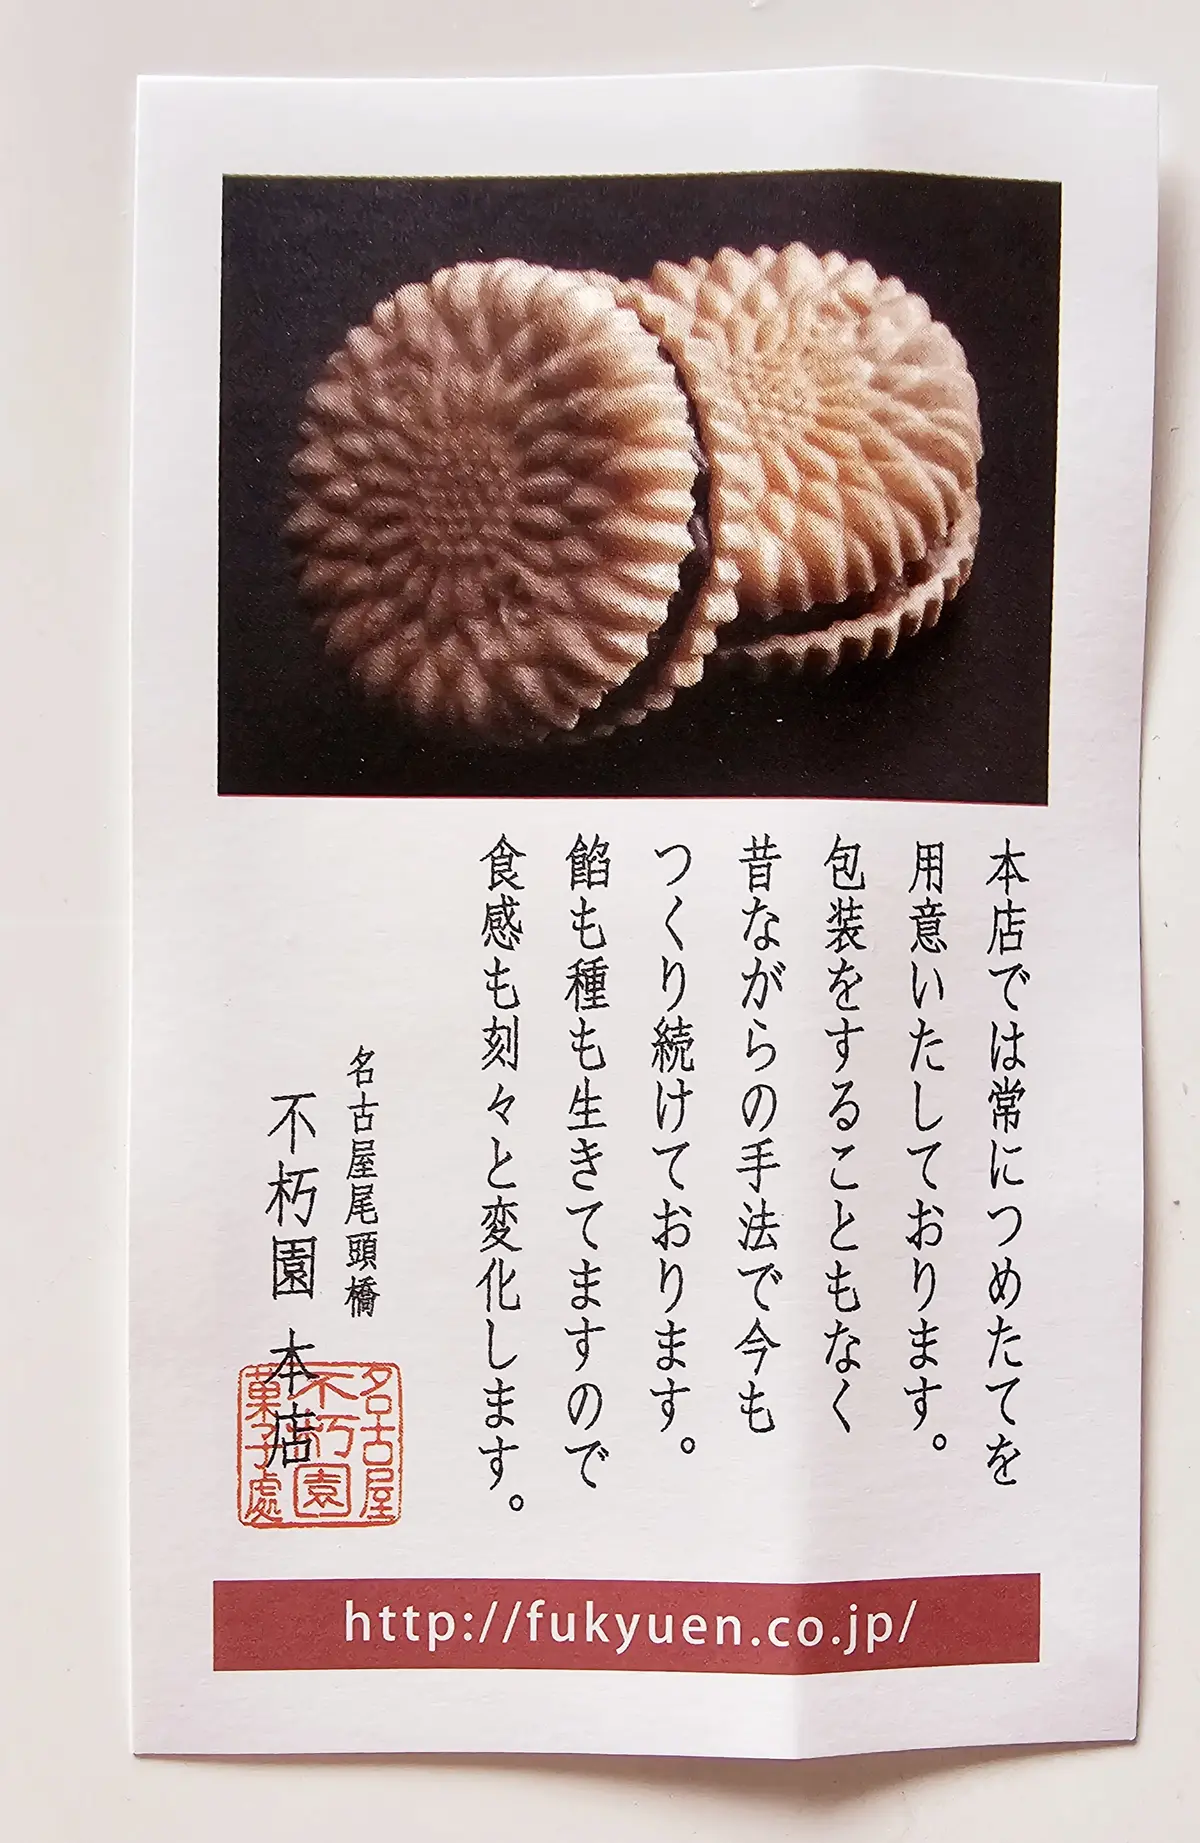 本店では常につめたてを
用意いたしております。
包装をすることもなく
昔ながらの手法で今も
つくり続けております。
餡も種も生きてますので
食感も刻々と変化します。
名古屋尾頭橋
不朽園 本店
名古屋
不朽園
菓子處
http://fukyuen.co.jp/